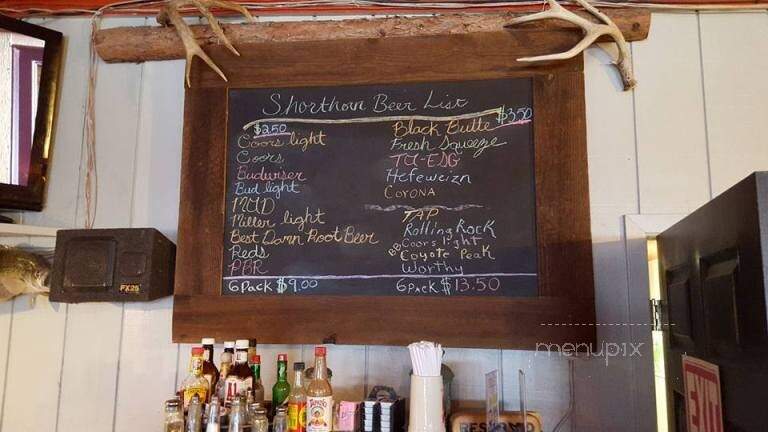 Shorthorn Beer List
$2.50
Coors light
Coors
Budwiser
Bud light
MGD
Miller light
Best Damn Root Beer
Reds
PBR
6 Pack $9.00
$3.50
Black Butte
Fresh Squeeze
Hefeweizn
Corona
TAP
Rolling Rock
Coors light
Coyote Peak
Worthy
6 Pack $13.50
FX25
menupix
EXIT